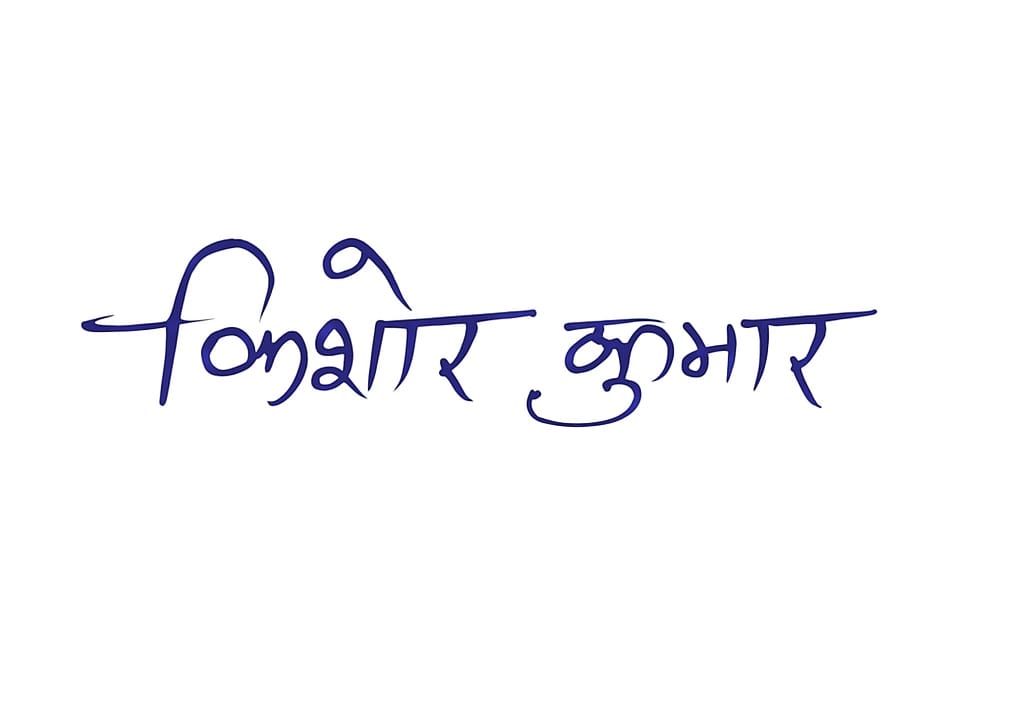 किशोर कुमार